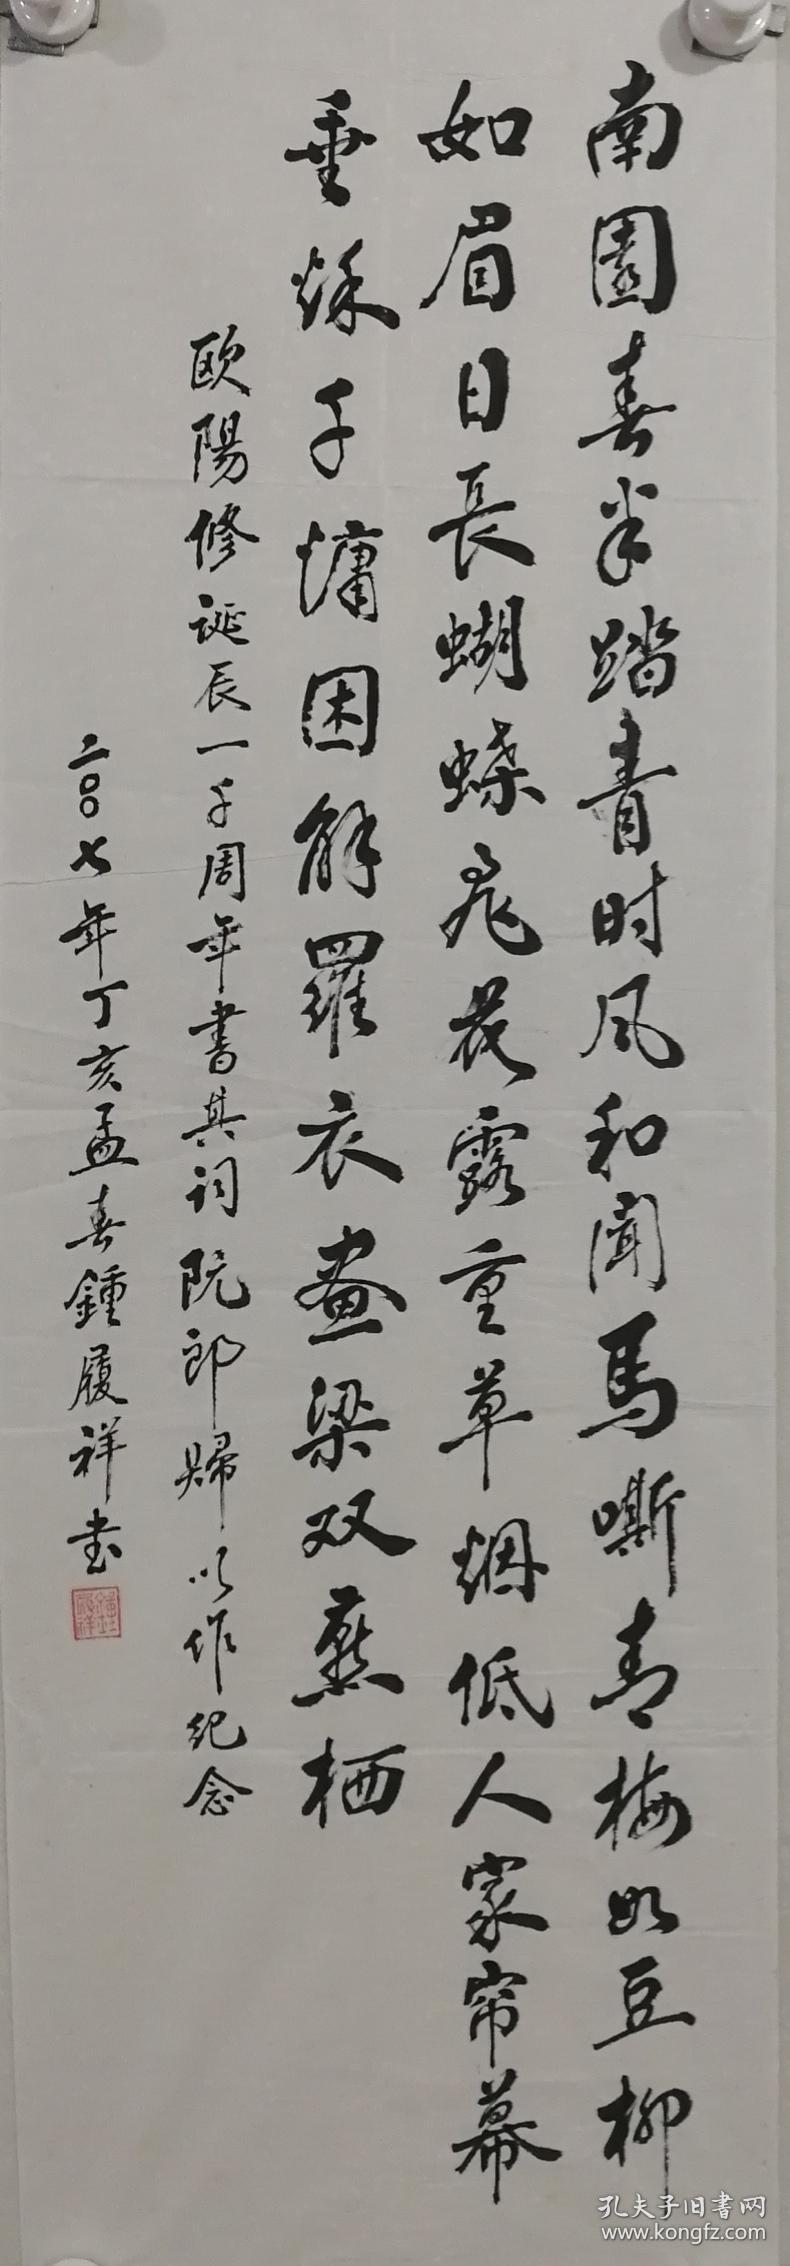 南園春半踏青时风和聞馬嘶青梅如豆柳
如眉日長蝴蝶飛花露重草烟低人家帘幕
垂秌千慵困解羅衣畫梁双燕栖
欧陽修诞辰一千周年書其词阮郎歸以作纪念
二〇〇七年丁亥孟春鍾履祥书
孔夫子旧书网
www.kongfz.com